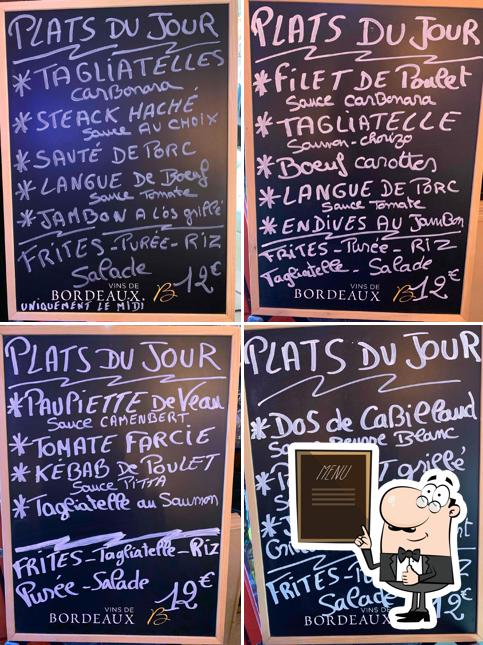 PLATS DU JOUR
* TAGLIATELLES
carbonara
* STEACK HACHÉ
Sauce AU CHOIX
* SAUTÉ DE PORC
* LANGUE DE Boeuf
Sauce Tomate
* JAMBON A L'os grillé
FRITES - Purée - RIZ
Salade 12€
VINS DE
BORDEAUX B
UNIQUEMENT LE MIDI
PLATS DU JOUR
* FILET DE Poulet
Sauce carbonara
* TAGLIATELLE
Saumon - chorizo
* Boeuf carottes
* LANGUE DE PORC
Sauce Tomate
* ENDIVES AU JamBon
FRITES - Purée - RIZ
Tagliatelle - Salade
12€
VINS DE
BORDEAUX B
PLATS DU JOUR
* PAUPIETTE De Veau
Sauce CAMEMBERT
* TOMATE FARCIE
* KÉBAB De POULET
Sauce PITTA
* Tagliatelle au Saumon
FRITES - Tagliatelle - RIZ
Purée - Salade 12€
VINS DE
BORDEAUX B
PLATS DU JOUR
* DOS de CaBillaud
Blanc
grillé
MENU
FRITES
Salade 12€
VINS DE
BORDEAUX